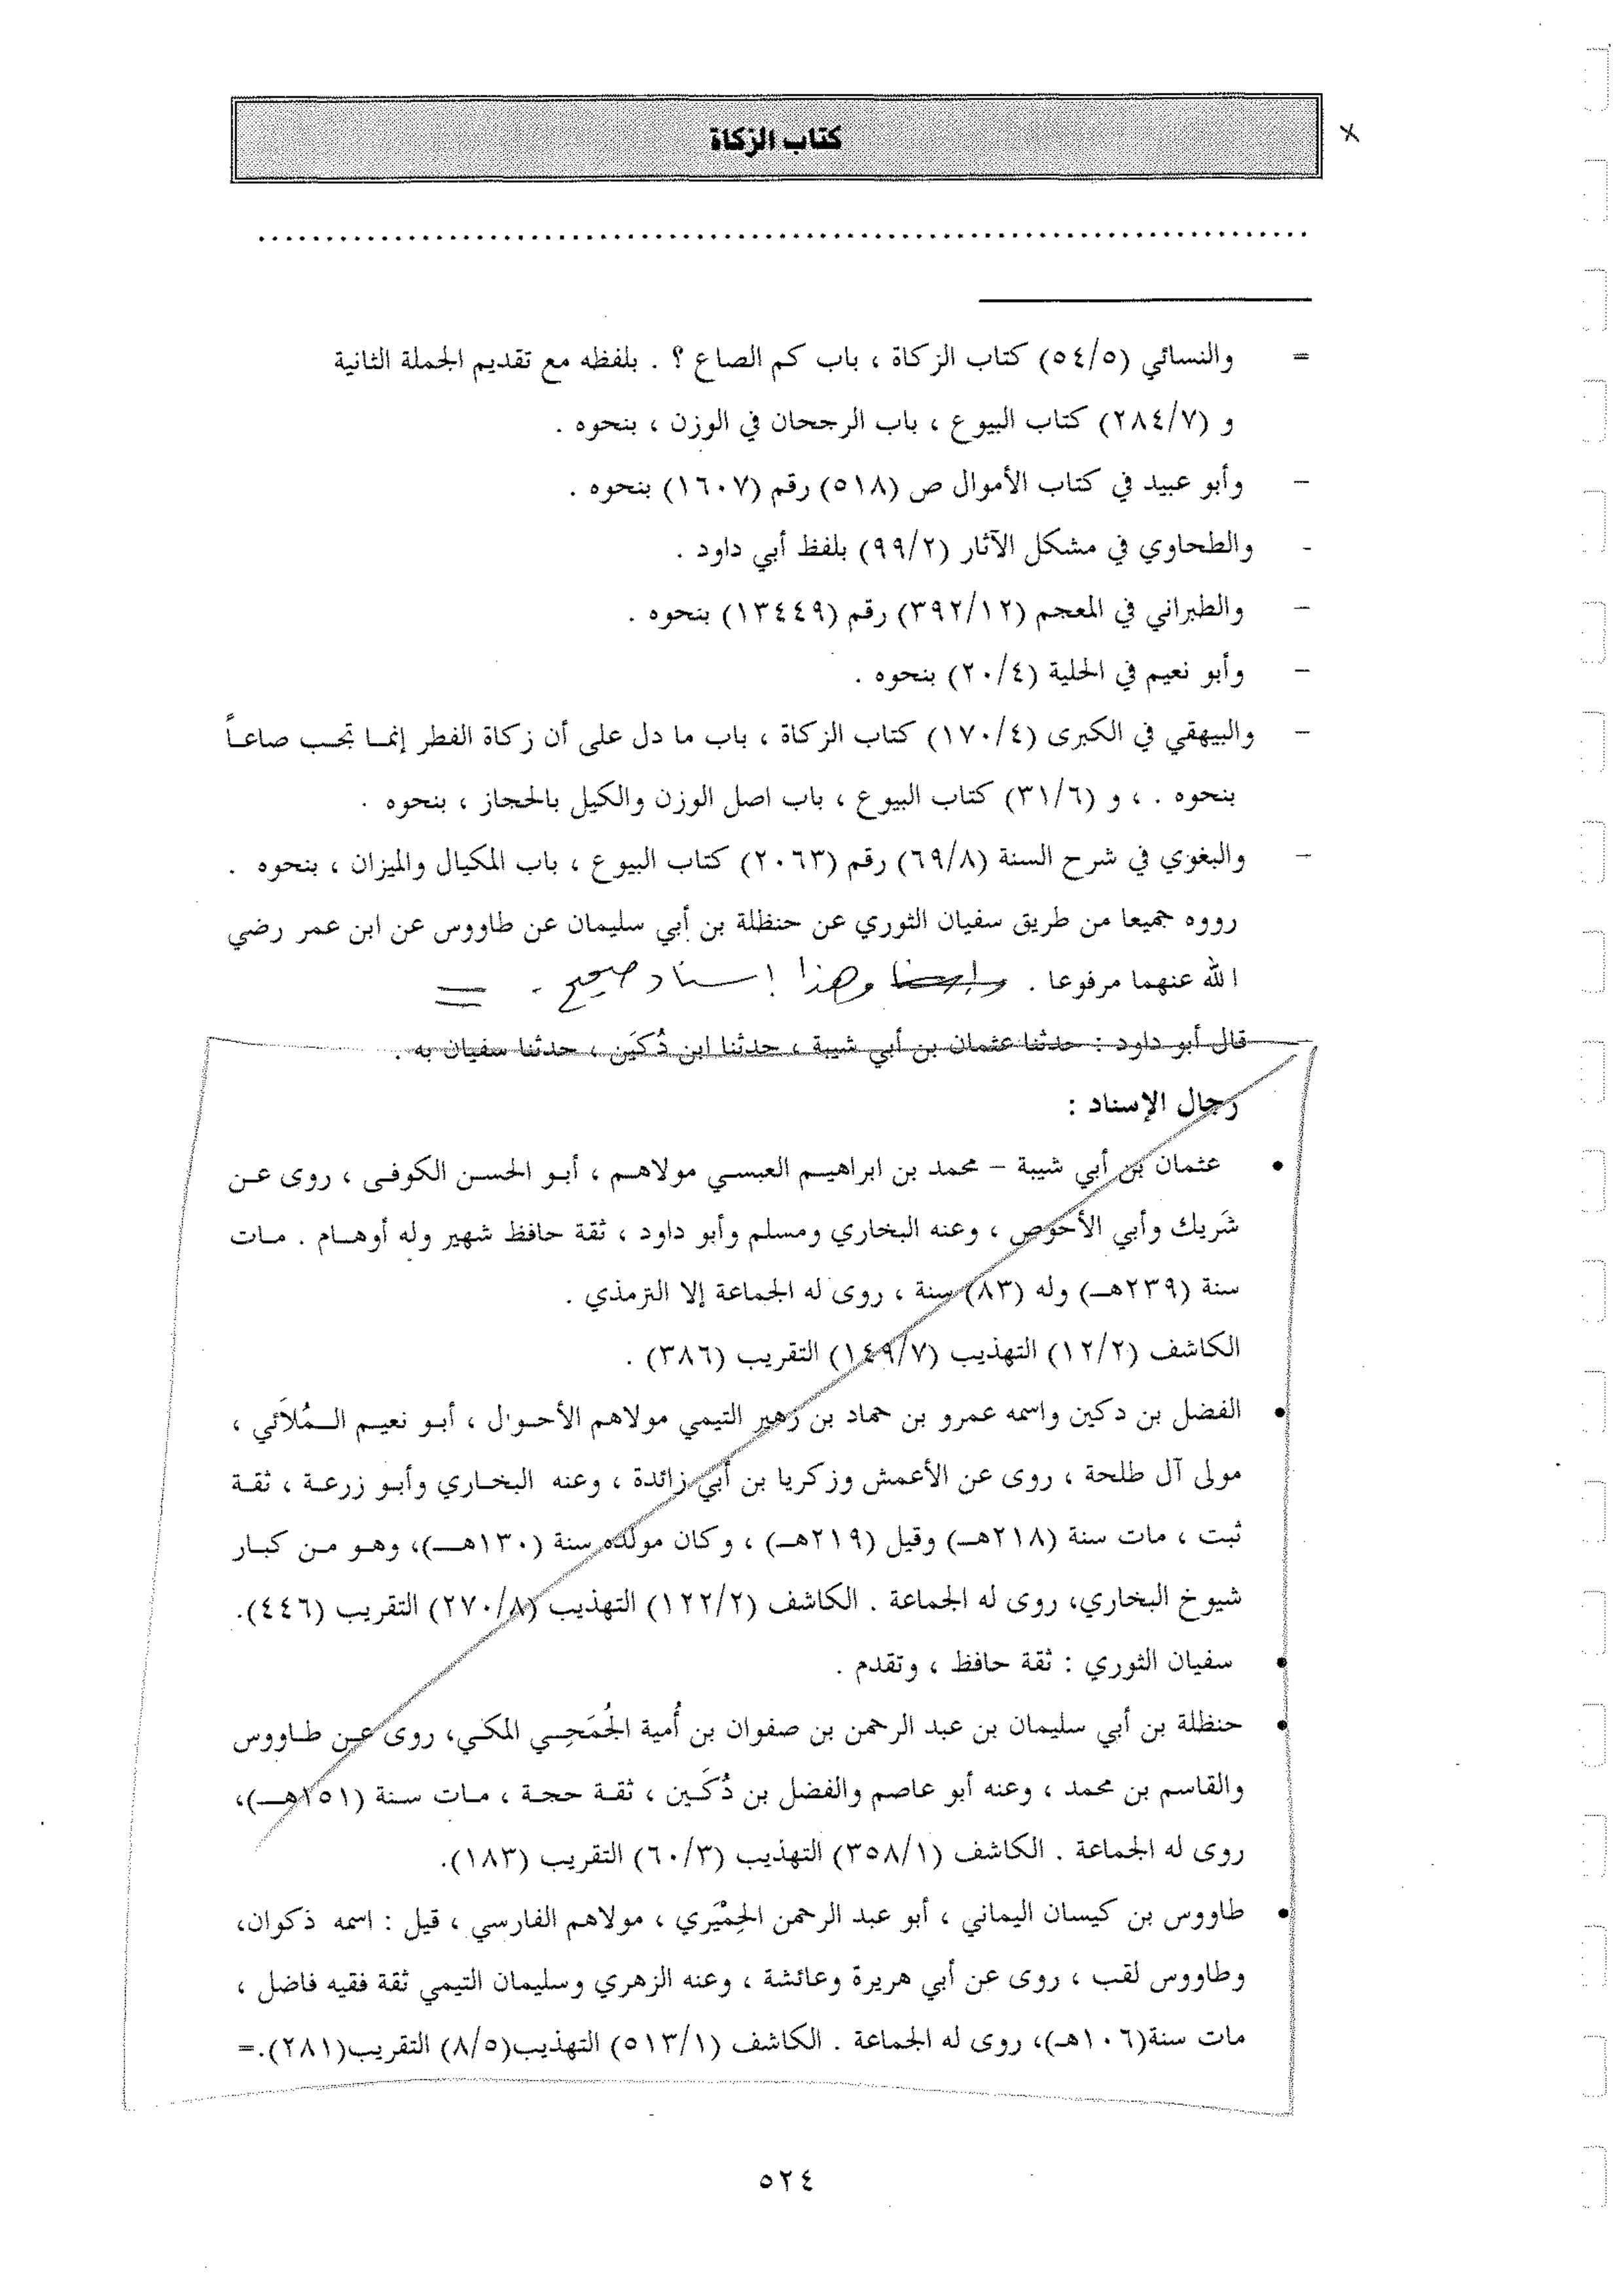 كتاب الزكاة
= والنسائي (٥٤/٥) كتاب الزكاة ، باب كم الصاع ؟ . بلفظه مع تقديم الجملة الثانية
و (٢٨٤/٧) كتاب البيوع ، باب الرجحان في الوزن ، بنحوه .
– وأبو عبيد في كتاب الأموال ص (٥١٨) رقم (١٦٠٧) بنحوه .
- والطحاوي في مشكل الآثار (٩٩/٢) بلفظ أبي داود .
– والطبراني في المعجم (٣٩٢/١٢) رقم (١٣٤٤٩) بنحوه .
– وأبو نعيم في الحلية (٢٠/٤) بنحوه .
– والبيهقي في الكبرى (١٧٠/٤) كتاب الزكاة ، باب ما دل على أن زكاة الفطر إنما تجب صاعاً
بنحوه . ، و (٣١/٦) كتاب البيوع ، باب اصل الوزن والكيل بالحجاز ، بنحوه .
– والبغوي في شرح السنة (٦٩/٨) رقم (٢٠٦٣) كتاب البيوع ، باب المكيال والميزان ، بنحوه .
رووه جميعا من طريق سفيان الثوري عن حنظلة بن أبي سليمان عن طاووس عن ابن عمر رضي
الله عنهما مرفوعا . وهذا إسناد صحيح . =
قال أبو داود : حدثنا عثمان بن أبي شيبة ، حدثنا ابن دُكَين ، حدثنا سفيان به .
رجال الإسناد :
• عثمان بن أبي شيبة – محمد بن ابراهيم العبسي مولاهم ، أبو الحسن الكوفى ، روى عن
شَريك وأبي الأحوص ، وعنه البخاري ومسلم وأبو داود ، ثقة حافظ شهير وله أوهام . مات
سنة (٢٣٩هـ) وله (٨٣) سنة ، روى له الجماعة إلا الترمذي .
الكاشف (١٢/٢) التهذيب (١٤٩/٧) التقريب (٣٨٦) .
• الفضل بن دكين واسمه عمرو بن حماد بن زهير التيمي مولاهم الأحول ، أبو نعيم المُلاَئي ،
مولى آل طلحة ، روى عن الأعمش وزكريا بن أبي زائدة ، وعنه البخاري وأبو زرعة ، ثقة
ثبت ، مات سنة (٢١٨هـ) وقيل (٢١٩هـ) ، وكان مولده سنة (١٣٠هـ)، وهو من كبار
شيوخ البخاري، روى له الجماعة . الكاشف (١٢٢/٢) التهذيب (٢٧٠/٨) التقريب (٤٤٦).
• سفيان الثوري : ثقة حافظ ، وتقدم .
• حنظلة بن أبي سليمان بن عبد الرحمن بن صفوان بن أُمية الجُمَحِي المكي، روى عن طاووس
والقاسم بن محمد ، وعنه أبو عاصم والفضل بن دُكَين ، ثقة حجة ، مات سنة (١٥١هـ)،
روى له الجماعة . الكاشف (٣٥٨/١) التهذيب (٦٠/٣) التقريب (١٨٣).
• طاووس بن كيسان اليماني ، أبو عبد الرحمن الحِمْيَري ، مولاهم الفارسي ، قيل : اسمه ذكوان،
وطاووس لقب ، روى عن أبي هريرة وعائشة ، وعنه الزهري وسليمان التيمي ثقة فقيه فاضل ،
مات سنة(١٠٦هـ)، روى له الجماعة . الكاشف (٥١٣/١) التهذيب(٨/٥) التقريب(٢٨١).=
٥٢٤